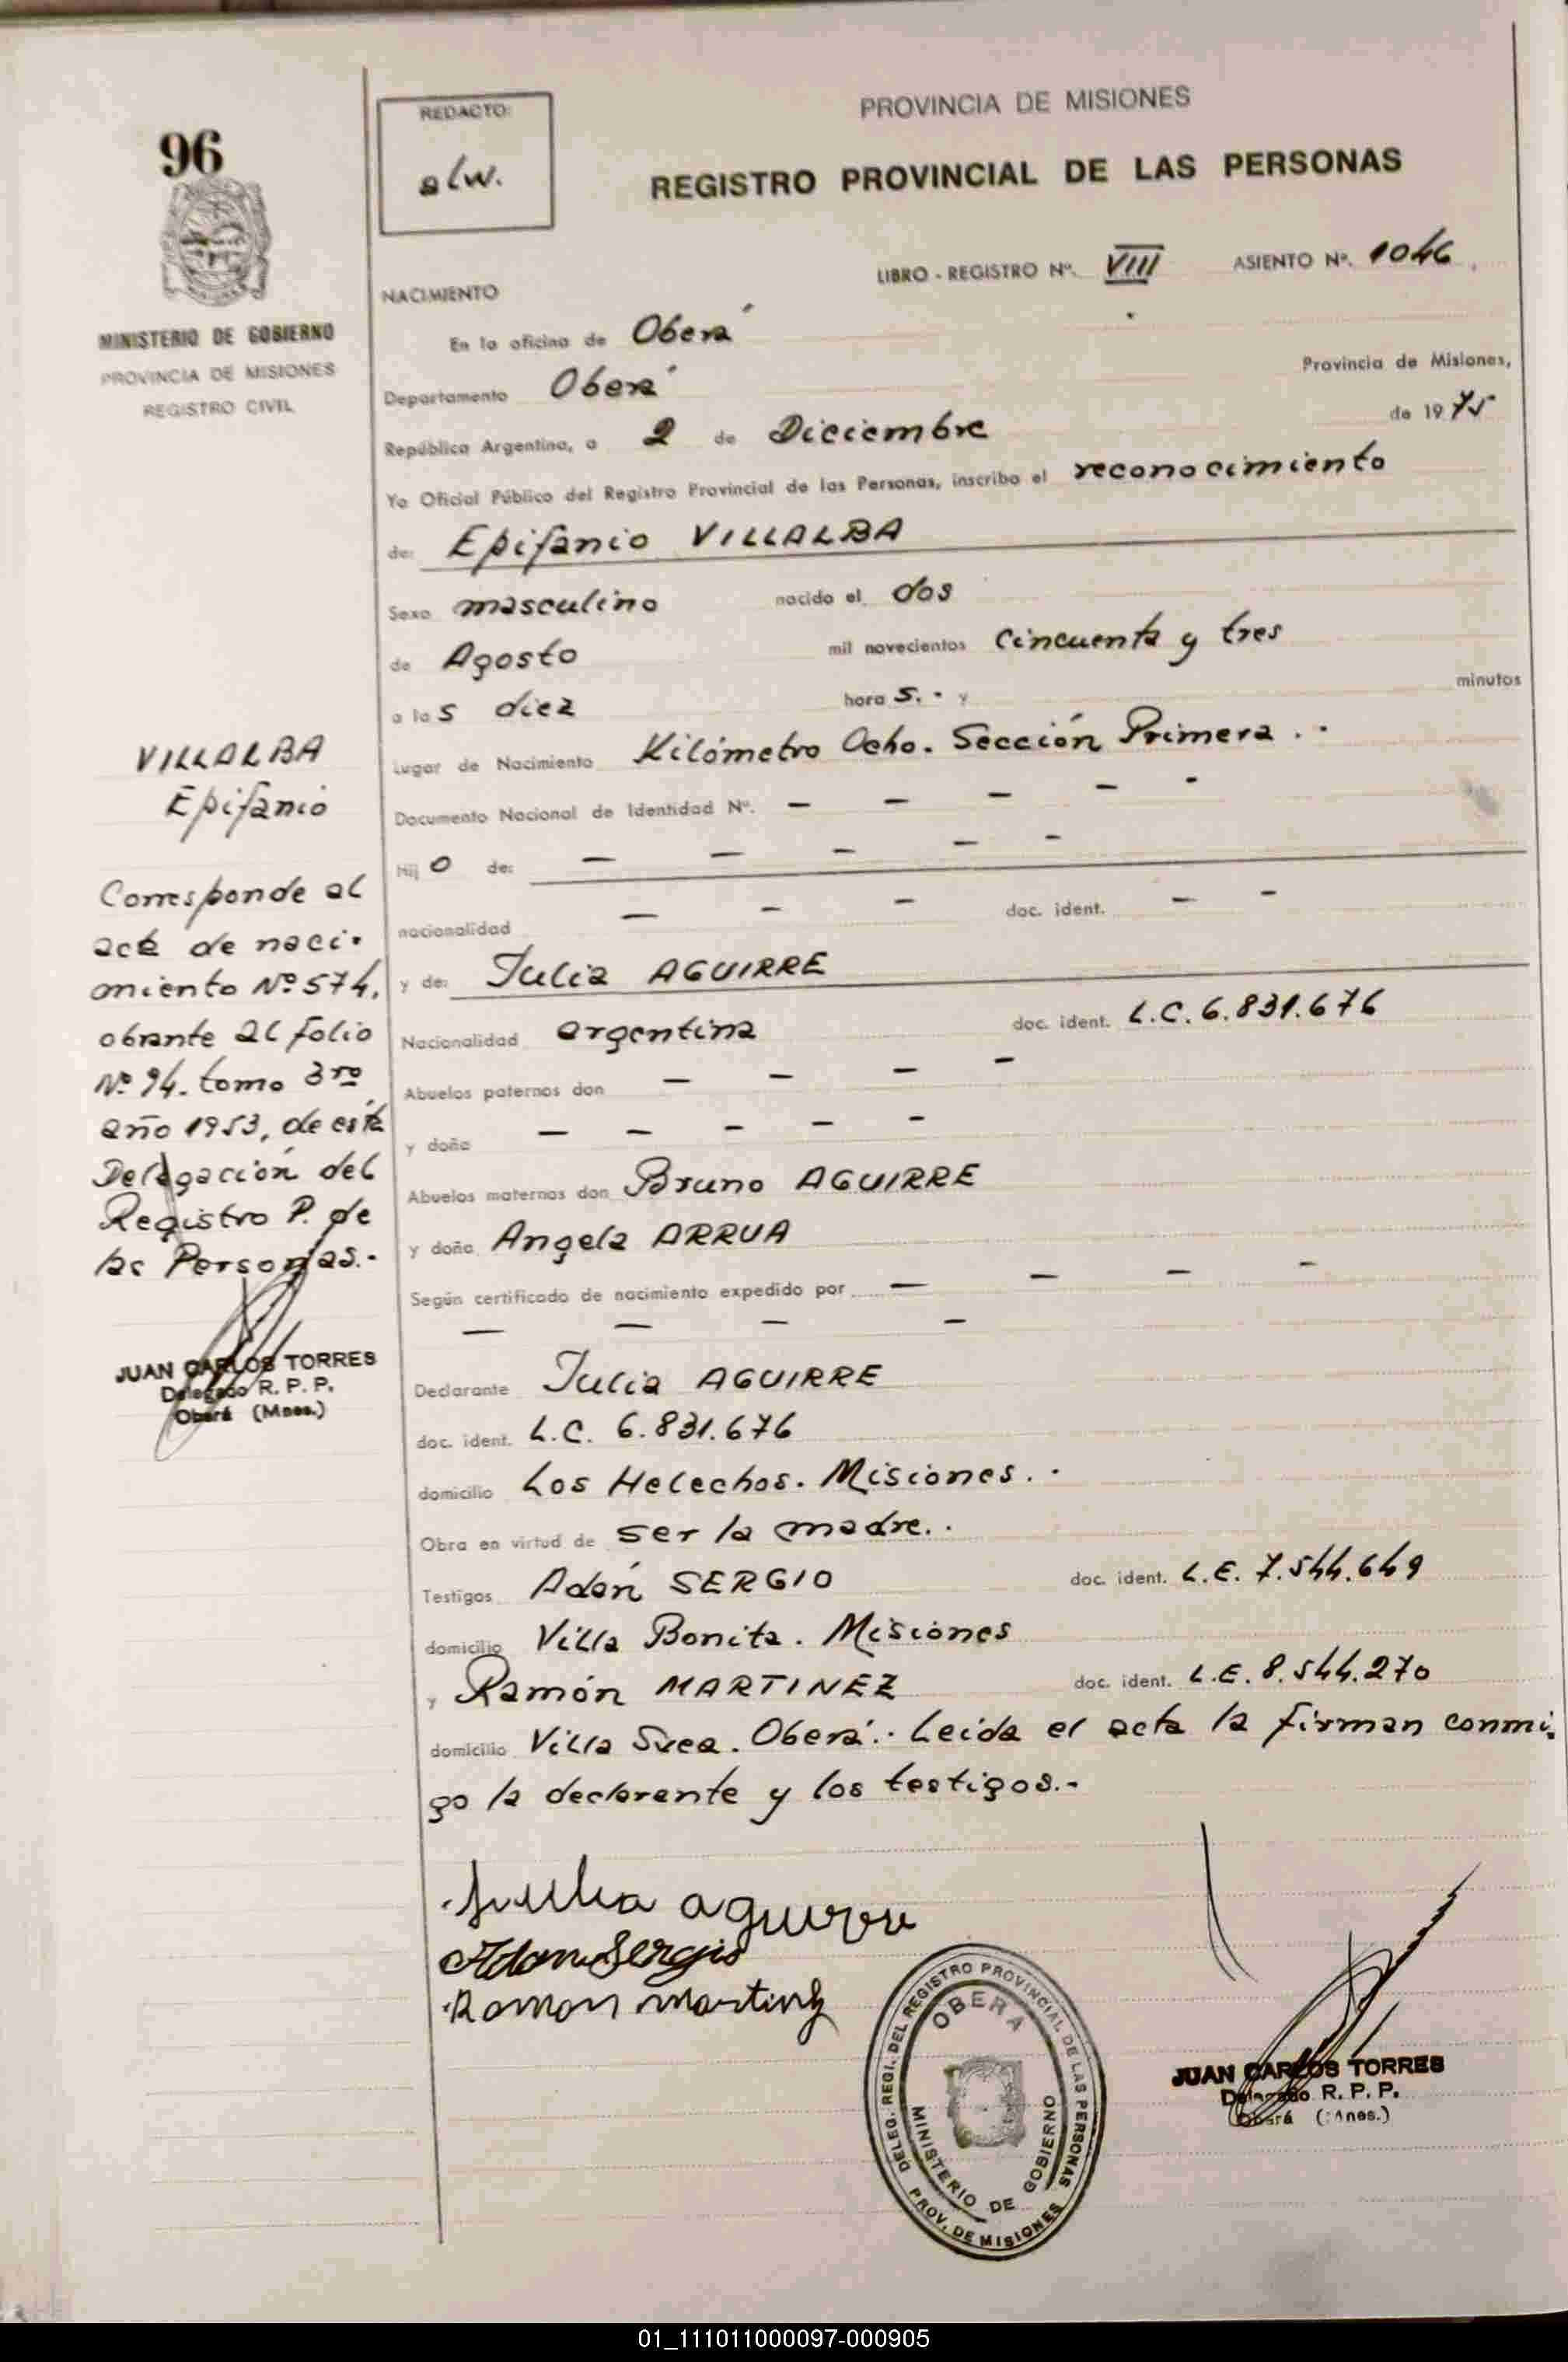 96
MINISTERIO DE GOBIERNO
PROVINCIA DE MISIONES
REGISTRO CIVIL
REDACTO:
alw.
PROVINCIA DE MISIONES
REGISTRO PROVINCIAL DE LAS PERSONAS
LIBRO - REGISTRO Nº. VIII ASIENTO Nº. 1046
NACIMIENTO
En la oficina de Oberá
Departamento Oberá Provincia de Misiones,
República Argentina, a 2 de Diciembre de 1975
Yo Oficial Público del Registro Provincial de las Personas, inscribo el reconocimiento
de: Epifanio VILLALBA
Sexo masculino nacido el dos
de Agosto mil novecientos cincuenta y tres
a las diez horas.- y minutos
Lugar de Nacimiento Kilómetro Ocho. Sección Primera.-
Documento Nacional de Identidad Nº. — — — — -
Hijo de: — — — — —
nacionalidad — — — doc. ident. — —
y de: Julia AGUIRRE
Nacionalidad argentina doc. ident. L.C. 6.831.676
Abuelos paternos don — — — —
y doña — — — — —
Abuelos maternos don Bruno AGUIRRE
y doña Angela ARRUA
Según certificado de nacimiento expedido por — — — —
— — — —
Declarante Julia AGUIRRE
doc. ident. L.C. 6.831.676
domicilio Los Helechos. Misiones.-
Obra en virtud de ser la madre.-
Testigos Adán SERGIO doc. ident. L.E. 7.544.649
domicilio Villa Bonita. Misiones
y Ramón MARTINEZ doc. ident. L.E. 8.544.270
domicilio Villa Svea. Oberá.- Leida el acta la firman conmi-
go la declarante y los testigos.-
Julia aguirre
Adan Sergio
Ramon martinez
DELEG. REGI. DEL REGISTRO PROVINCIAL DE LAS PERSONAS
OBERA
MINISTERIO DE GOBIERNO
PROV. DE MISIONES
JUAN CARLOS TORRES
Delegado R. P. P.
Oberá (Mnes.)
VILLALBA
Epifanio
Corresponde al
acta de naci-
miento Nº 574,
obrante al folio
Nº 94. tomo 3ro
año 1953, de esta
Delegación del
Registro P. de
las Personas.-
JUAN CARLOS TORRES
Delegado R. P. P.
Oberá (Mnes.)
01_111011000097-000905